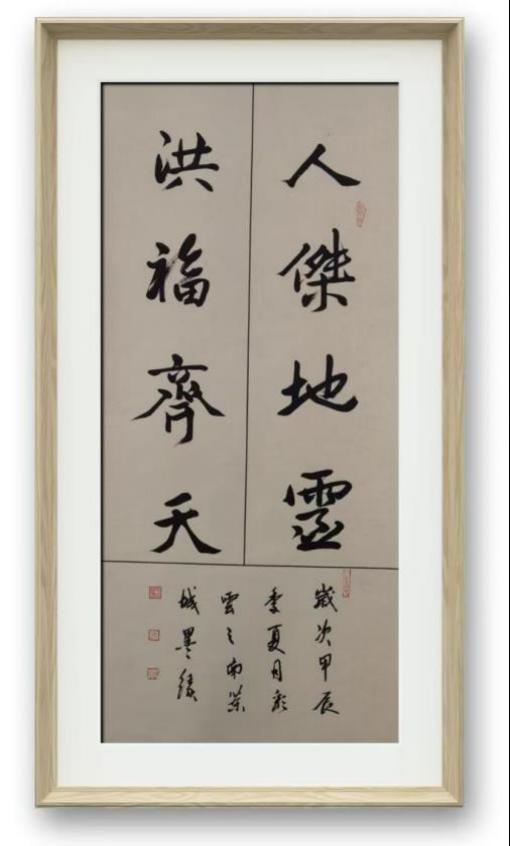 人傑地靈
洪福齊天
歲次甲辰
季夏月彩
雲之南業
城墨緣